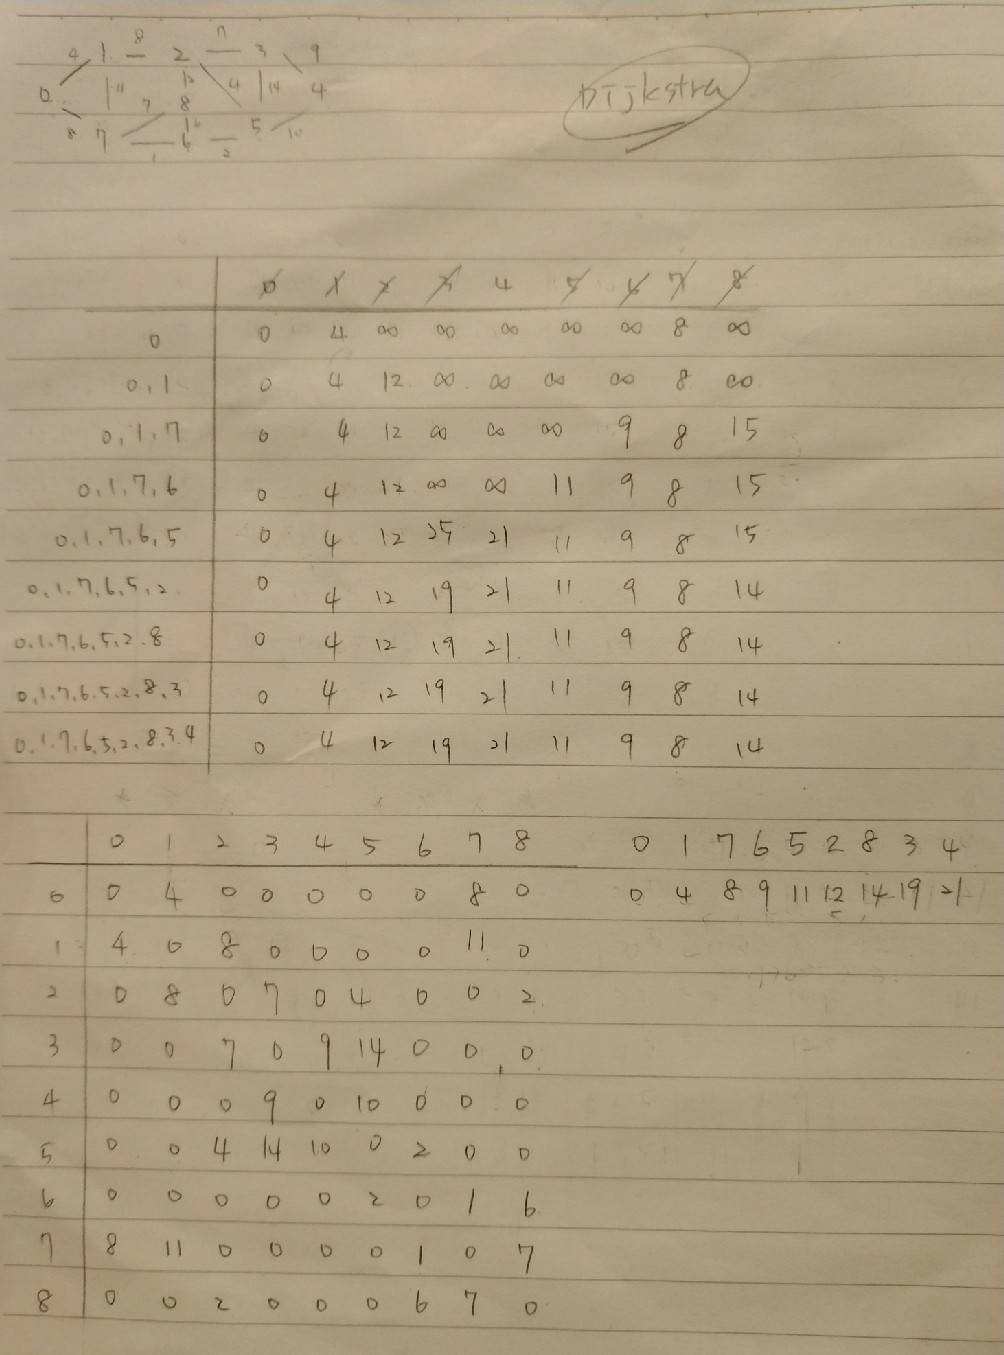 8 7
4 1 2 3 9
0 11 2 4 14 4
7 8
8 7 6 6 5 10
1 2
Dijkstra
0 1 2 3 4 5 6 7 8
0 0 4 ∞ ∞ ∞ ∞ ∞ 8 ∞
0,1 0 4 12 ∞ ∞ ∞ ∞ 8 ∞
0,1,7 0 4 12 ∞ ∞ ∞ 9 8 15
0,1,7,6 0 4 12 ∞ ∞ 11 9 8 15
0,1,7,6,5 0 4 12 25 21 11 9 8 15
0,1,7,6,5,2 0 4 12 19 21 11 9 8 14
0,1,7,6,5,2,8 0 4 12 19 21 11 9 8 14
0,1,7,6,5,2,8,3 0 4 12 19 21 11 9 8 14
0,1,7,6,5,2,8,3,4 0 4 12 19 21 11 9 8 14
0 1 2 3 4 5 6 7 8
0 0 4 0 0 0 0 0 8 0
1 4 0 8 0 0 0 0 11 0
2 0 8 0 7 0 4 0 0 2
3 0 0 7 0 9 14 0 0 0
4 0 0 0 9 0 10 0 0 0
5 0 0 4 14 10 0 2 0 0
6 0 0 0 0 0 2 0 1 6
7 8 11 0 0 0 0 1 0 7
8 0 0 2 0 0 0 6 7 0
0 1 7 6 5 2 8 3 4
0 4 8 9 11 12 14 19 21